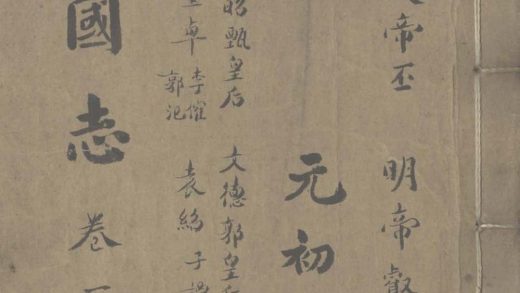 帝丕 明帝叡
元初
昭甄皇后 文德郭皇后
卓 李傕 郭汜 袁紹 子
國志 卷